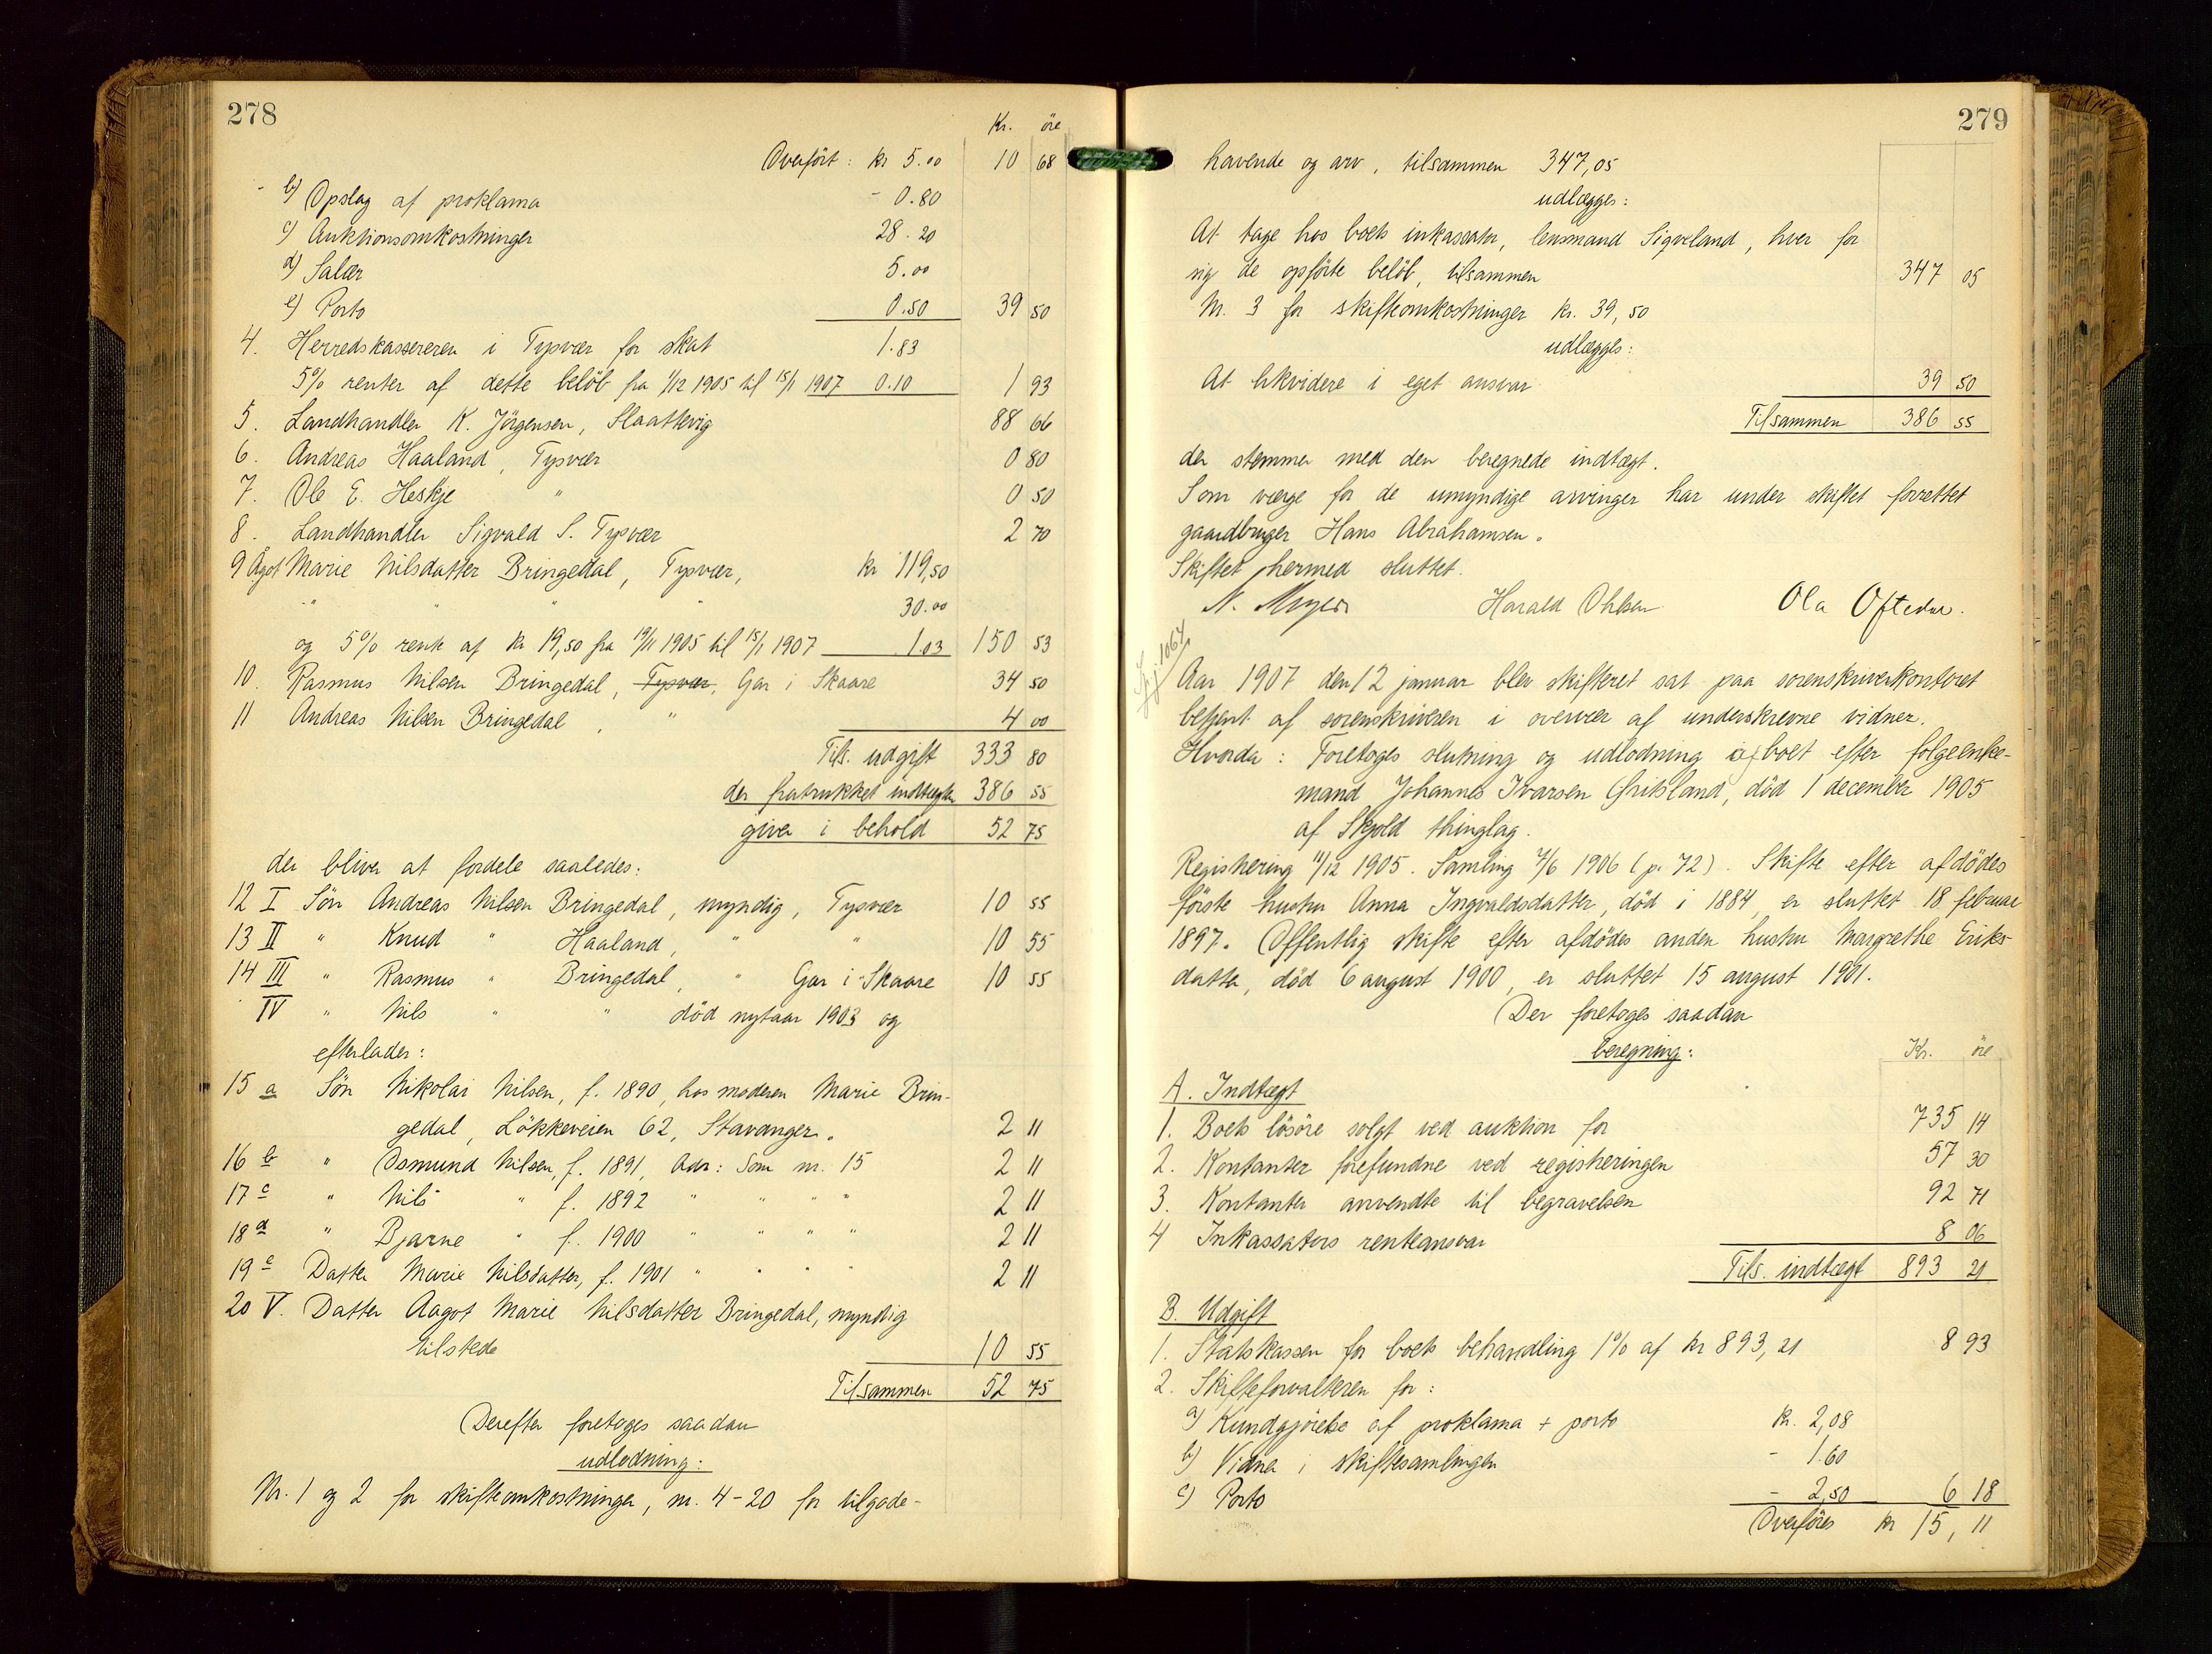 278
Kr. öre
Overført: kr 5.00 10 68
b) Opslag af proklama - 0.80
c) Auktionsomkostninger 28.20
d) Salær 5.00
e) Porto 0.50 39 50
4. Herredskassereren i Tysvær for skat 1.83
5% renter af dette beløb fra 1/12 1905 til 15/1 1907 0.10 1 93
5. Landhandler K. Jörgensen, Slaattevig 88 66
6. Andreas Haaland, Tysvær 0 80
7. Ole E. Heskje " 0 50
8. Landhandler Sigvald S. Tysvær 2 70
9 Agot Marie Nilsdatter Bringedal, Tysvær, kr 119,50
" " " 30.00
og 5% rente af kr 19,50 fra 19/11 1905 til 15/1 1907 1.03 150 53
10. Rasmus Nilsen Bringedal, Tysvær, Gar i Skaare 34 50
11 Andreas Nilsen Bringedal, " 4 00
Tils. udgift 333 80
der fratrukket indtægten 386 55
giver i behold 52 75
der bliver at fordele saaledes:
12 I Søn Andreas Nilsen Bringedal, myndig, Tysvær 10 55
13 II " Knud " Haaland, " " 10 55
14 III " Rasmus " Bringedal, " Gar i Skaare 10 55
IV " Nils " " død nytaar 1903 og
efterlader:
15 a Søn Nikolai Nilsen, f. 1890, hos moderen Marie Brin-
gedal, Løkkeveien 62, Stavanger. 2 11
16 b " Osmund Nilsen, f. 1891, Adr: Som nr. 15 2 11
17 c " Nils " f. 1892 " " " " 2 11
18 d " Bjarne " f. 1900 " " " " 2 11
19 e Datter Marie Nilsdatter, f. 1901 " " " " 2 11
20 V. Datter Aagot Marie Nilsdatter Bringedal, myndig
tilstede 10 55
Tilsammen 52 75
Derefter foretoges saadan
udlodning:
Nr. 1 og 2 for skifteomkostninger, nr. 4-20 for tilgode-
279
havende og arv, tilsammen 347,05
udlægges:
At tage hos boets inkassator, lensmand Sigveland, hver for
sig de opførte beløb, tilsammen 347 05
Nr. 3 for skifteomkostninger kr. 39,50
udlægges:
At likvidere i eget ansvar 39 50
Tilsammen 386 55
der stemmer med den beregnede indtægt.
Som værge for de umyndige arvinger har under skiftet forrettet
gaardbruger Hans Abrahamsen.
Skiftet hermed sluttet.
N. Meyer Harald Ohlsen Ola Oftedal.
Aar 1907 den 12 januar blev skifteret sat paa sorenskriverkontoret
betjent af sorenskriveren i overvær af underskrevne vidner.
Hvorda: Foretoges slutning og udlodning af boet efter folgeenke-
mand Johannes Ivarsen Gritsland, død 1 december 1905
af Skjold thinglag.
Registrering 11/12 1905. Samling 7/6 1906 (p. 72). Skifte efter afdødes
første hustru Anna Ingvaldsdatter, død i 1884, er sluttet 18 februar
1897. Offentlig skifte efter afdødes anden hustru Margrethe Eriks-
datter, død 6 august 1900, er sluttet 15 august 1901.
Der foretoges saadan
beregning: Kr. öre
A. Indtægt
1. Boets løsøre solgt ved auktion for 735 14
2. Kontanter forefundne ved registreringen 57 30
3. Kontanter anvendte til begravelsen 92 71
4 Inkassators renteansvar 8 06
Tils. indtægt 893 21
B. Udgift
1. Statskassen for boets behandling 1% af kr 893,21 8 93
2. Skifteforvalteren for:
a) Kundgjørelse af proklama + porto kr. 2,08
b) Vidner i skiftesamlingen - 1.60
c) Porto - 2,50 6 18
Overføres kr 15,11